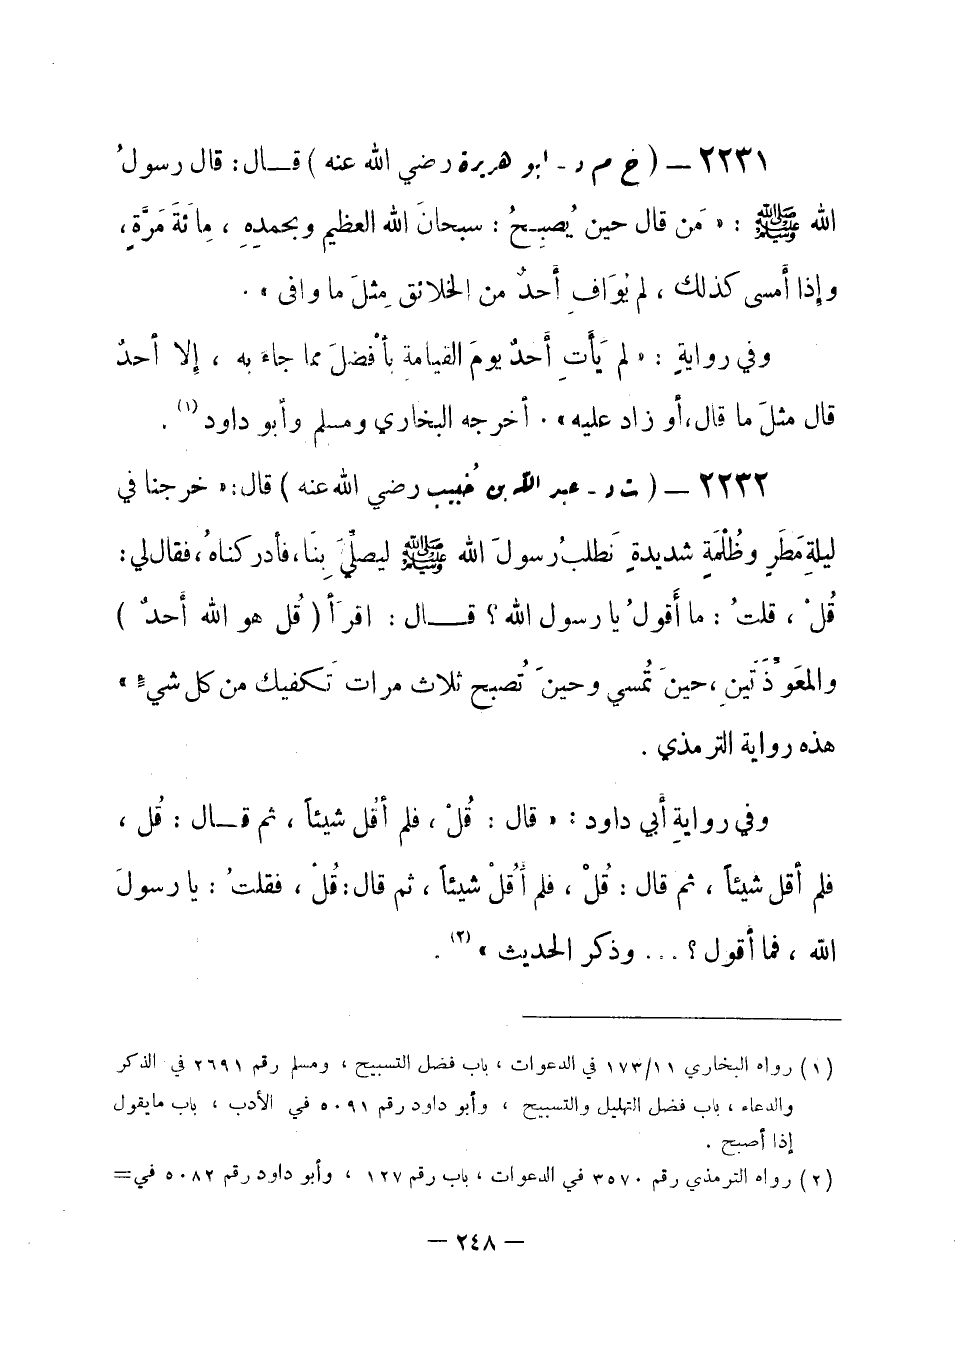 ٢٢٣١ – ( خ م د - ابو هريرة رضي الله عنه ) قـــال : قال رسولُ
الله ﷺ : « مَن قال حين يُصبـِحُ : سبحانَ الله العظيم وبحمدِهِ ، مِائةَ مَرَّةٍ ،
وإذا أمسى كذلك ، لم يُوَافِ أحدٌ من الخلائق مِثلَ ما وافى » .
وفي روايةٍ : « لم يَأتِ أحدٌ يومَ القيامةِ بأفضلَ مما جاءَ به ، إلا أحدٌ
قال مثلَ ما قال ، أو زاد عليه » . أخرجه البخاري ومسلم وأبو داود (١) .
٢٢٣٢ – ( ت د - عبد الله بن خُبيب رضي الله عنه ) قال : « خرجنا في
ليلةِ مَطَرٍ وظُلْمَةٍ شديدةٍ نَطلبُ رسولَ الله ﷺ ليصلِّيَ بِنَا ، فأدركناهُ ، فقال لي :
قُلْ ، قلتُ : ما أَقولُ يا رسول الله ؟ قـــال : اقرَأ ( قُل هو الله أحدٌ )
والمعَوِّذَتَينِ ، حينَ تُمسي وحينَ تُصبح ثلاث مرات تَكفيك من كل شيءٍ »
هذه رواية الترمذي .
وفي روايةِ أَبي داود : « قال : قُلْ ، فلم أقُل شيئاً ، ثم قـــال : قُل ،
فلم أقل شيئاً ، ثم قال : قُلْ ، فلم أقُلْ شيئاً ، ثم قال : قُلْ ، فقلتُ : يا رسولَ
الله ، فما أقول ؟ ... وذكر الحديث » (٢) .
(١) رواه البخاري ١١/١٧٣ في الدعوات ، باب فضل التسبيح ، ومسلم رقم ٢٦٩١ في الذكر
والدعاء ، باب فضل التهليل والتسبيح ، وأبو داود رقم ٥٠٩١ في الأدب ، باب مايقول
إذا أصبح .
(٢) رواه الترمذي رقم ٣٥٧٠ في الدعوات ، باب رقم ١٢٧ ، وأبو داود رقم ٥٠٨٢ في=
– ٢٤٨ –